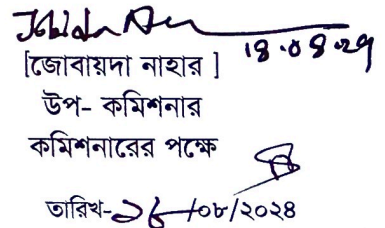 ১৪.০৪.২৭
[জোবায়দা নাহার ]
উপ- কমিশনার
কমিশনারের পক্ষে
তারিখ- /০৮/২০২৪